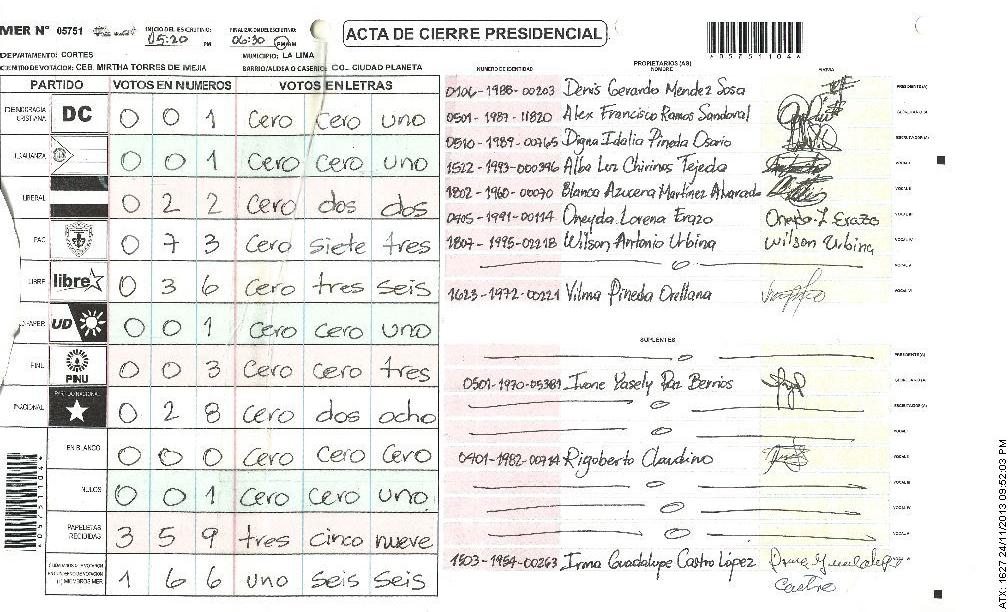 MER Nº 05751
INICIO DEL ESCRUTINIO: 05:20 PM
FINALIZACION DEL ESCRUTINIO: 06:30 PM
ACTA DE CIERRE PRESIDENCIAL
*05751104*
DEPARTAMENTO: CORTES
MUNICIPIO: LA LIMA
CENTRO DE VOTACION: CEB. MIRTHA TORRES DE MEJIA
BARRIO/ALDEA O CASERIO: CO.. CIUDAD PLANETA
PARTIDO VOTOS EN NUMEROS VOTOS EN LETRAS
DEMOCRACIA CRISTIANA DC 0 0 1 cero cero uno
ALIANZA 0 0 1 cero cero uno
LIBERAL 0 2 2 cero dos dos
PAC 0 7 3 cero siete tres
LIBRE libre 0 3 6 cero tres seis
UD 0 0 1 cero cero uno
PINU PINU 0 0 3 cero cero tres
NACIONAL PARTIDO NACIONAL 0 2 8 cero dos ocho
EN BLANCO 0 0 0 cero cero cero
NULOS 0 0 1 cero cero uno
PAPELETAS RECIBIDAS 3 5 9 tres cinco nueve
1 6 6 uno seis seis
*05751104*
NUMERO DE IDENTIDAD PROPIETARIOS (AS) NOMBRE FIRMA
0106-1988-00203 Denis Gerardo Mendez Sosa PRESIDENTE(A)
0501-1987-11820 Alex Francisco Ramos Sandoval SECRETARIO(A)
0510-1989-00765 Digna Idalia Pineda Osorio ESCRUTADOR(A)
1522-1993-000396 Alba Luz Chirinos Tejeda VOCAL I
1802-1960-00070 Blanca Azucena Martinez Alvarado VOCAL II
0405-1991-00114 Oneyda Lorena Erazo Oneyda L Erazo VOCAL III
1807-1995-02218 Wilson Antonio Urbina Wilson Urbina VOCAL IV
VOCAL V
1623-1972-00221 Vilma Pineda Orellana VOCAL VI
SUPLENTES
PRESIDENTE(A)
0501-1970-05381 Ivone Yasely Paz Berrios SECRETARIO(A)
ESCRUTADOR(A)
VOCAL I
0401-1982-00714 Rigoberto Claudino VOCAL II
VOCAL III
VOCAL IV
VOCAL V
1503-1954-00263 Irma Guadalupe Castro López
Castro
ATX: 1627 24/11/2013 09:52:03 PM